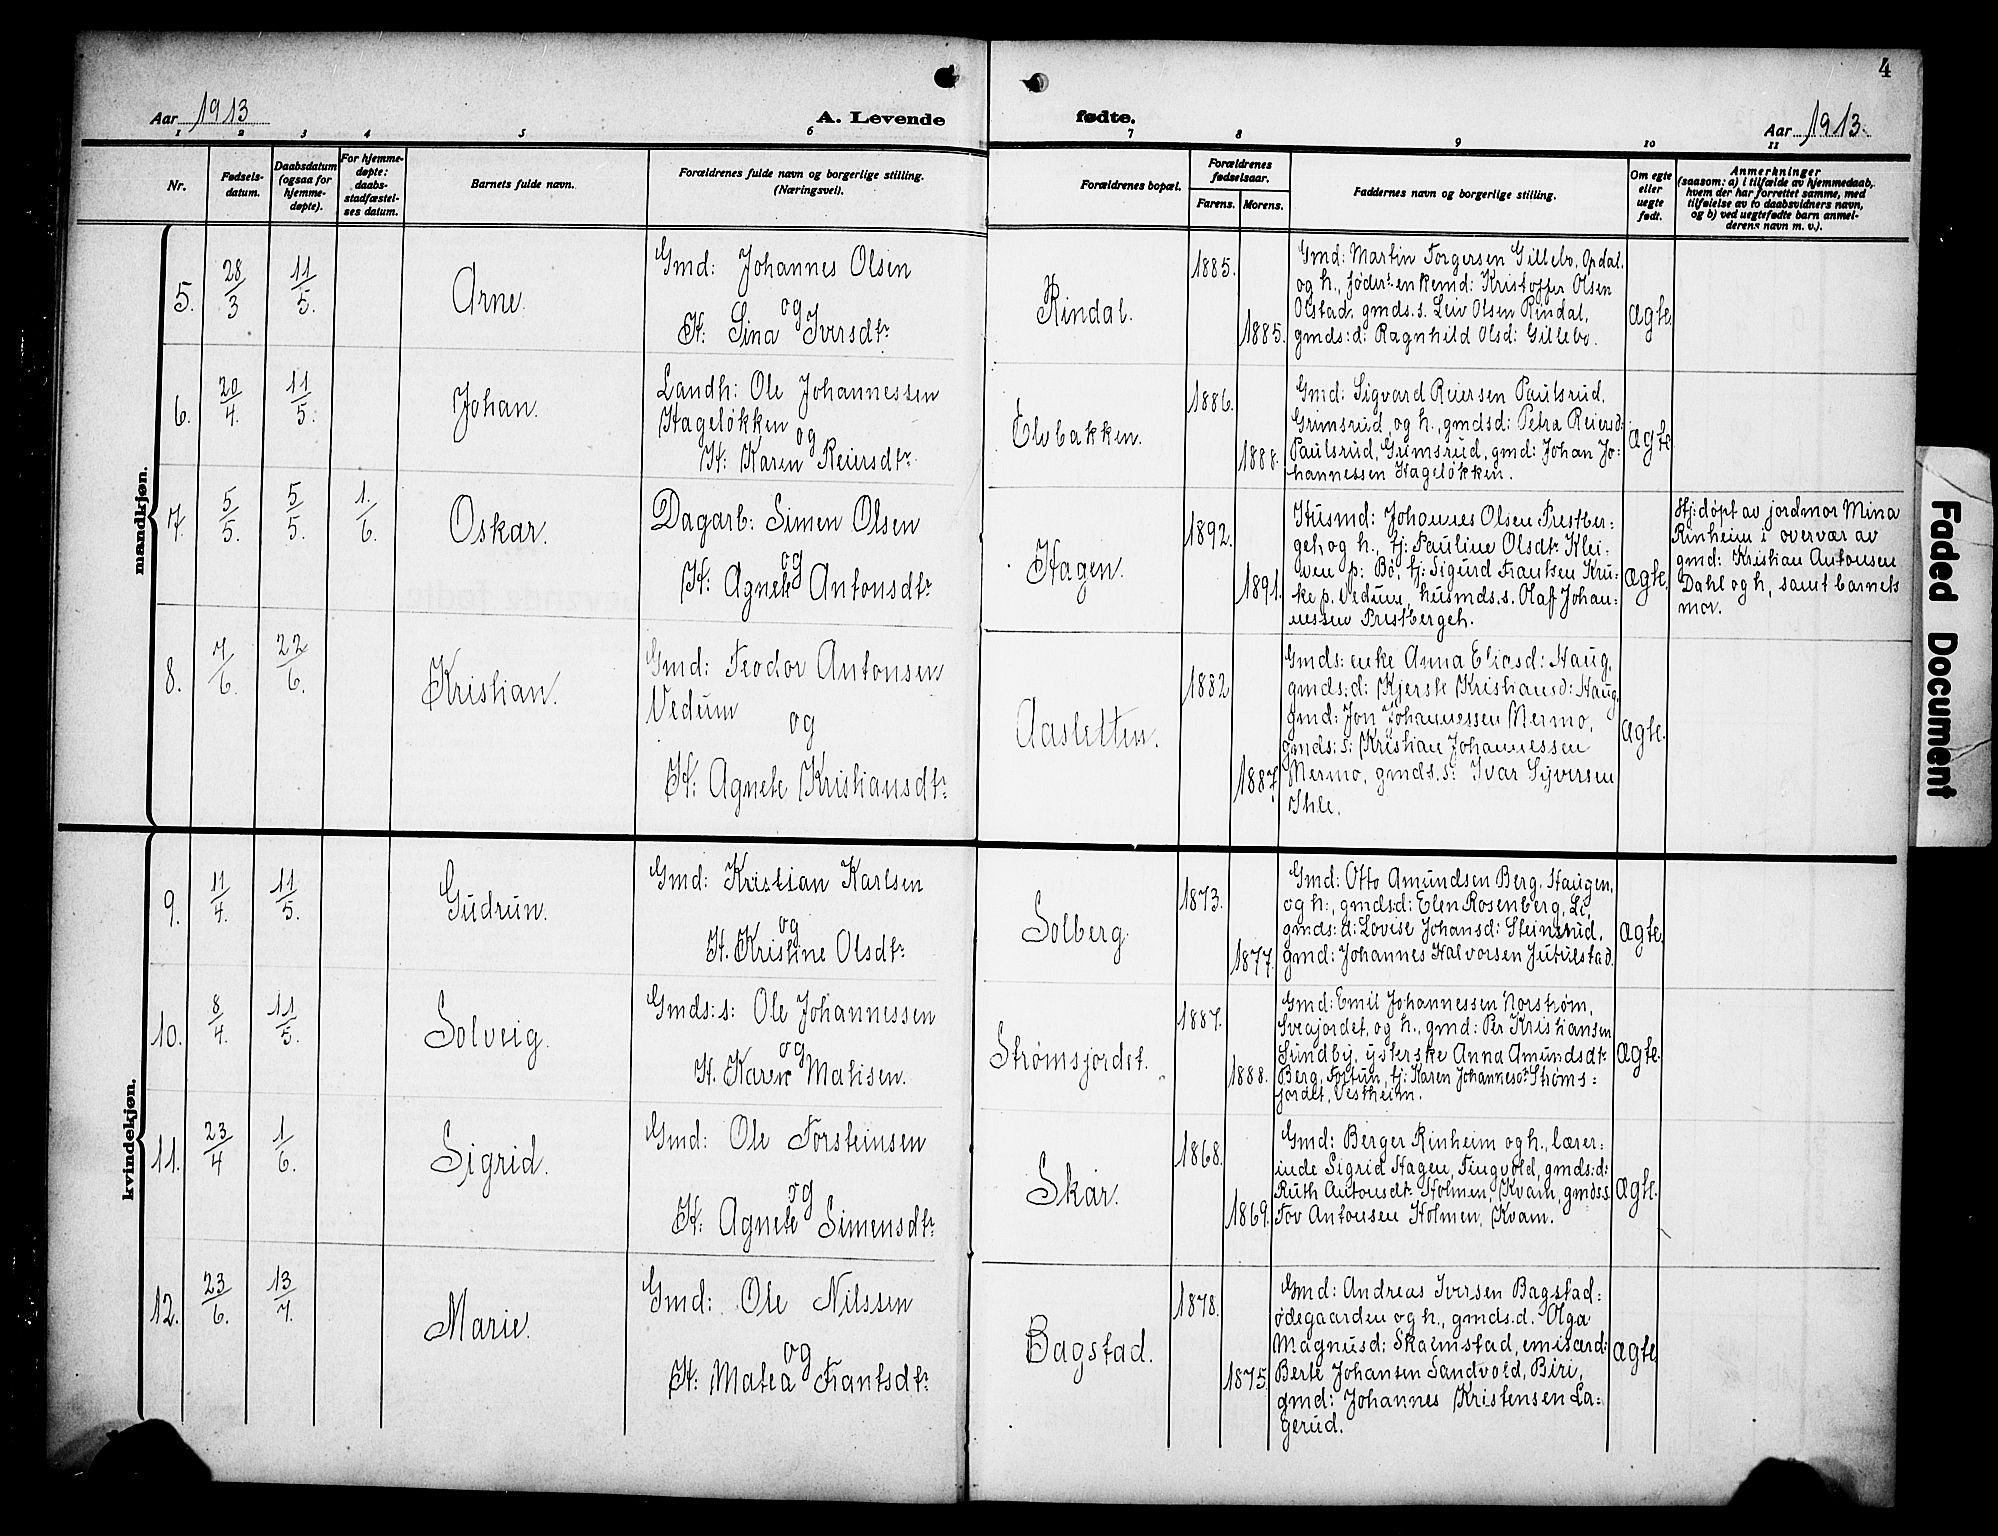 4
Aar 1913
A. Levende
fødte.
Aar 1913.
1 2 3 4 5 6 7 8 9 10 11
Nr.
Fødsels-
datum.
Daabsdatum
(ogsaa for
hjemme-
døpte).
For hjemme-
døpte:
daabs-
stadfæstel-
ses datum.
Barnets fulde navn.
Forældrenes fulde navn og borgerlige stilling.
(Næringsvei).
Forældrenes bopæl.
Forældrenes
fødselsaar.
Farens. Morens.
Faddernes navn og borgerlige stilling.
Om egte
eller
uegte
født.
Anmerkninger
(saasom: a) i tilfælde av hjemmedaab,
hvem der har forrettet samme, med
tilføielse av to daabsvidners navn,
og b) ved uegtefødte barn anmel-
derens navn m. v.).
mandkjøn.
5. 28/3 11/5. Arne.
Gmd: Johannes Olsen
og
H: Lina Iversdtr
Rindal.
1885.
1885.
Gmd: Martin Torgersen Gillebo, Opdal,
og h., föderenkemd: Kristoffer Olsen
Olstad, gmds.s. Leiv Olsen Rindal,
gmds:d: Ragnhild Olsd: Gillebo.
ægte.
6. 20/4. 11/5. Johan.
Landh: Ole Johannessen
Hageløkken
og
H: Karen Reiersdtr
Elvbakken.
1886.
1888.
Gmd: Sigvard Reiersen Paulsrud,
Grimsrud, og h., gmdsd: Petra Reiersd:
Paulsrud, Grimsrud, gmd: Johan Jo-
hannessen Hageløkken.
ægte
7. 5/5. 5/5. 1./6. Oskar.
Dagarb: Simen Olsen
og
H: Agnete Antonsdtr
Hagen.
1892.
1891.
Husmd: Johannes Olsen Prestber:
geh, og h., tj: Pauline Olsdtr Klei-
ven p: Bø, tj: Sigurd Frantsen Kru-
ke p. Vedum, husmds.s. Olaf Johan:
nessen Prestbergeh.
ægte.
Hj: døpt av jordmor Mina
Rinheim i overvær av
gmd: Kristian Antonsen
Dahl og h, samt barnets
mor.
8. 7/6. 22/6. Kristian.
Gmd: Teodor Antonsen
Vedum
og
H: Agnete Kristiansdtr
Aasletten.
1882
1887
Gmds: enke Anna Eliasd: Haug,
gmds:d: Kjerste Kristiansd: Haug,
gmd: Jon Johannessen Mermo,
gmds:s: Kristian Johannessen
Mermo, gmds.s: Ivar Syversen
Ihle.
ægte.
kvindekjøn.
9. 11/4. 11/5. Gudrun.
Gmd: Kristian Karlsen
og
H. Kristine Olsdtr
Solberg
1873.
1877.
Gmd: Otto Amundsen Berg, Haugen,
og h., gmds:d: Elen Rosenberg, Li,
gmds:d: Lovise Johansd: Steinsrud,
gmd: Johannes Halvorsen Jutulstad.
ægte.
10. 8/4. 11/5. Solveig.
Gmds:s: Ole Johannessen
og
H. Karen Matisen.
Strømsjordet.
1887.
1888.
Gmd: Emil Johannessen Norstrøm,
Sveajordet, og h., gmd: Per Kristiansen
Sundby, ysterske Anna Amundsdtr
Berg, Fortun, tj: Karen Johannesdtr Strøms:
jordet, Vestheim.
ægte.
11. 23/4 1/6. Sigrid.
Gmd: Ole Torsteinsen
og
H: Agnete Simensdtr
Skar.
1868.
1869.
Gmd: Berger Rinheim og h., lærer:
inde Sigrid Hagen, Tingvold, gmds:d:
Ruth Antonsdtr Holmen, Kvam, gmds.s.
Tov Antonsen Holmen, Kvam.
ægte.
12. 23/6. 13/7. Marie.
Gmd: Ole Nilssen
og
H: Matea Frantsdtr
Bagstad.
1878.
1875.
Gmd: Andreas Iversen Bagstad:
ødegaarden og h., gmds.d. Olga
Magnusd: Skalmstad, emisærd:
Berte Johansen Sandvold, Biri,
gmd: Johannes Kristensen La:
gerud.
ægte
Faded Document